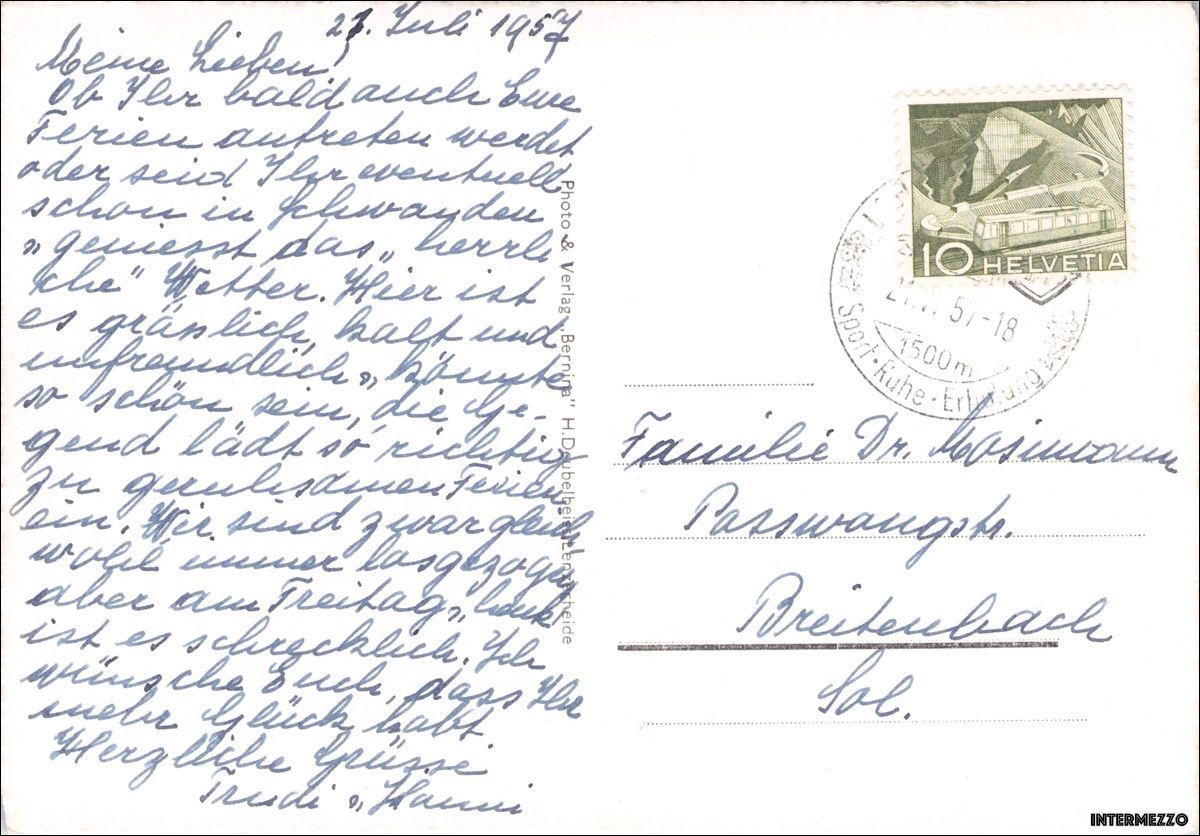 21. Juli 1957
Meine Lieben,
Ob Ihr bald auch Eure
Ferien antreten werdet
oder seid Ihr eventuell
schon in Schwanden
u. geniesst das „herrli
che" Wetter. Hier ist
es grässlich, kalt und
unfreundlich u. könnte
so schön sein, die Ge-
gend lädt so richtig
zu geruhsamen Ferien
ein. Wir sind zwar gleich
wohl immer losgezogen
aber am Freitag u. heute
ist es schrecklich. Ich
wünsche Euch, dass Ihr
mehr Glück habt
Herzliche Grüsse
Trudi u. Hanni
Photo & Verlag „Bernina" H. Deubelbeiss, Lenzerheide
10 HELVETIA
57-18
1500 m
Sport-Ruhe-Erholung
Familie Dr. Mosimann
Passwangstr.
Breitenbach
Sol.
INTERMEZZO